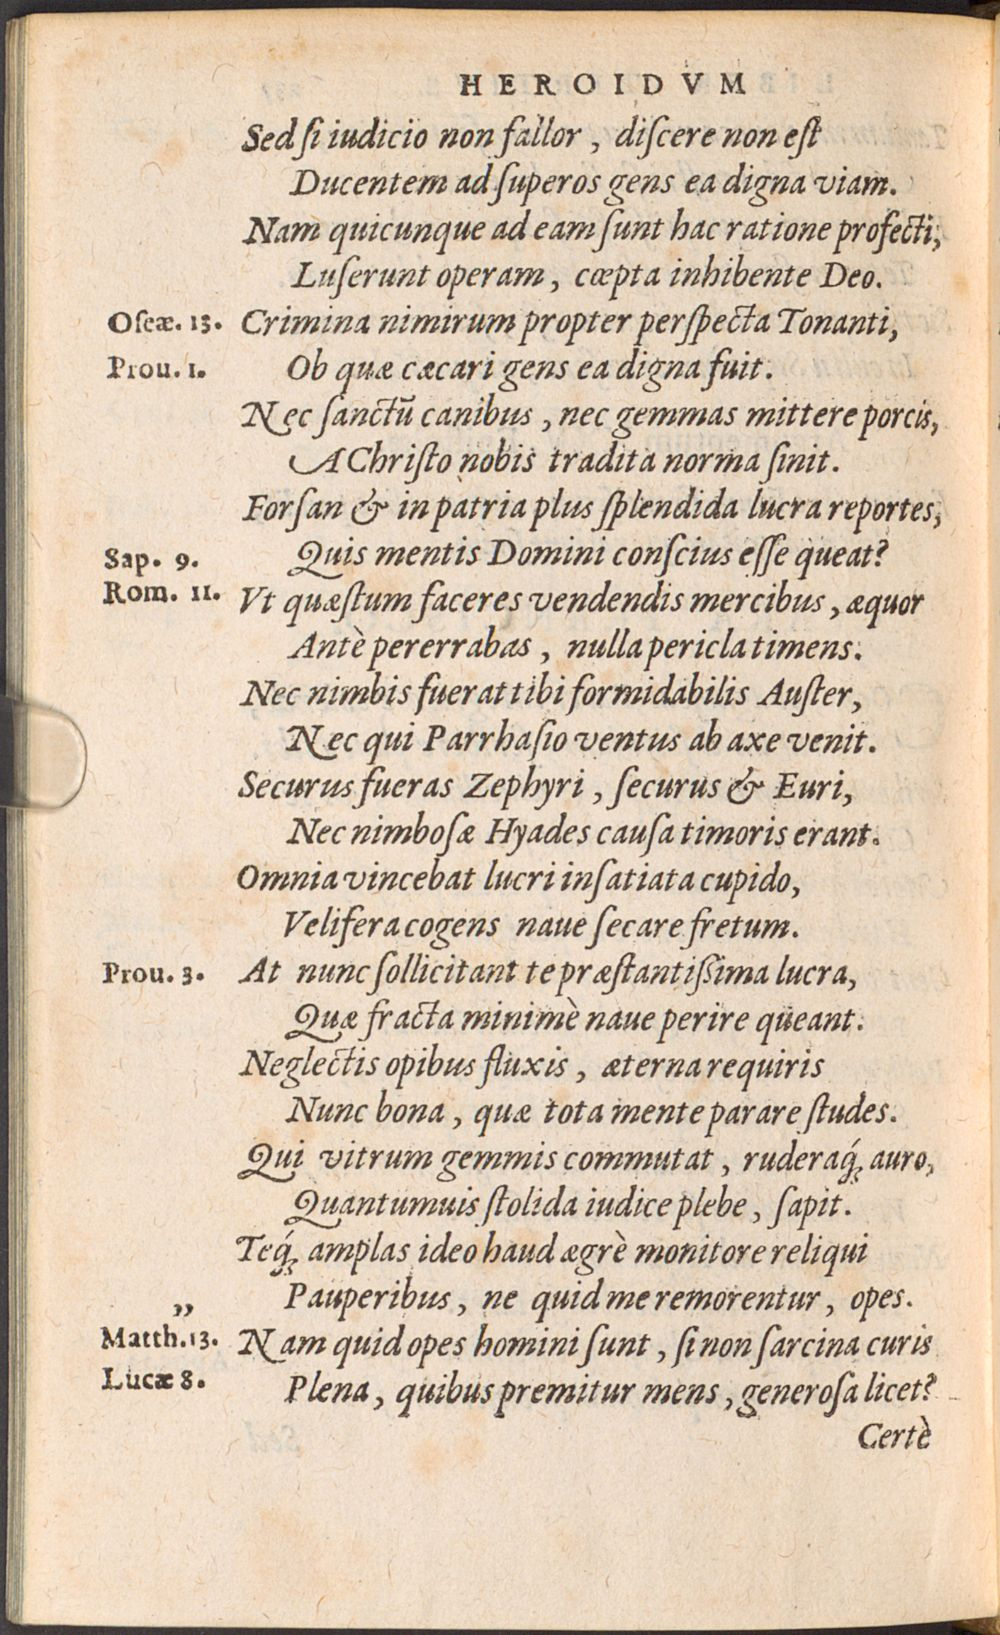 HEROIDVM
Sed ſi iudicio non fallor , diſcere non eſt
Ducentem ad ſuperos gens ea digna viam.
Nam quicunque ad eam ſunt hac ratione profecti,
Luſerunt operam , cœpta inhibente Deo.
Oſeæ. 13. Crimina nimirum propter perſpecta Tonanti,
Prou. 1. Ob quæ cæcari gens ea digna fuit.
Nec ſanctū canibus , nec gemmas mittere porcis,
A Chriſto nobis tradita norma ſinit.
Forſan & in patria plus ſplendida lucra reportes,
Sap. 9. Quis mentis Domini conſcius eſſe queat?
Rom. 11. Vt quæſtum faceres vendendis mercibus , æquor
Antè pererrabas , nulla pericla timens.
Nec nimbis fuerat tibi formidabilis Auſter,
Nec qui Parrhaſio ventus ab axe venit.
Securus fueras Zephyri , ſecurus & Euri,
Nec nimboſæ Hyades cauſa timoris erant.
Omnia vincebat lucri inſatiata cupido,
Velifera cogens naue ſecare fretum.
Prou. 3. At nunc ſollicitant te præſtantißima lucra,
Quæ fracta minimè naue perire queant.
Neglectis opibus fluxis , æterna requiris
Nunc bona , quæ tota mente parare ſtudes.
Qui vitrum gemmis commutat , ruderaq́; auro,
Quantumuis ſtolida iudice plebe , ſapit.
Teq́; amplas ideo haud ægrè monitore reliqui
Pauperibus , ne quid me remorentur , opes.
„
Matth.13. Nam quid opes homini ſunt , ſi non ſarcina curis
Lucæ 8. Plena , quibus premitur mens , generoſa licet?
Certè